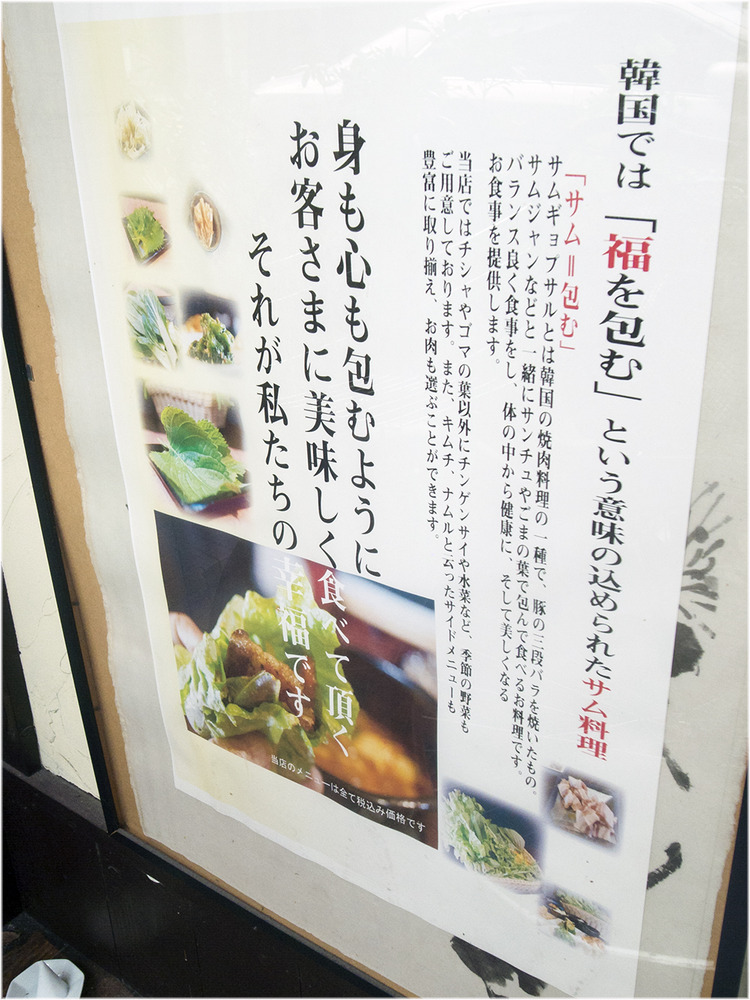 韓国では「福を包む」という意味の込められたサム料理
「サム＝包む」
サムギョプサルとは韓国の焼肉料理の一種で、豚の三段バラを焼いたもの。
サムジャンなどと一緒にサンチュやごまの葉で包んで食べるお料理です。
バランス良く食事をし、体の中から健康に、そして美しくなる
お食事を提供します。
当店ではチシャやゴマの葉以外にチンゲンサイや水菜など、季節の野菜も
ご用意しております。また、キムチ、ナムルと云ったサイドメニューも
豊富に取り揃え、お肉も選ぶことができます。
身も心も包むように
お客さまに美味しく食べて頂く
それが私たちの幸福です
当店のメニューは全て税込み価格です